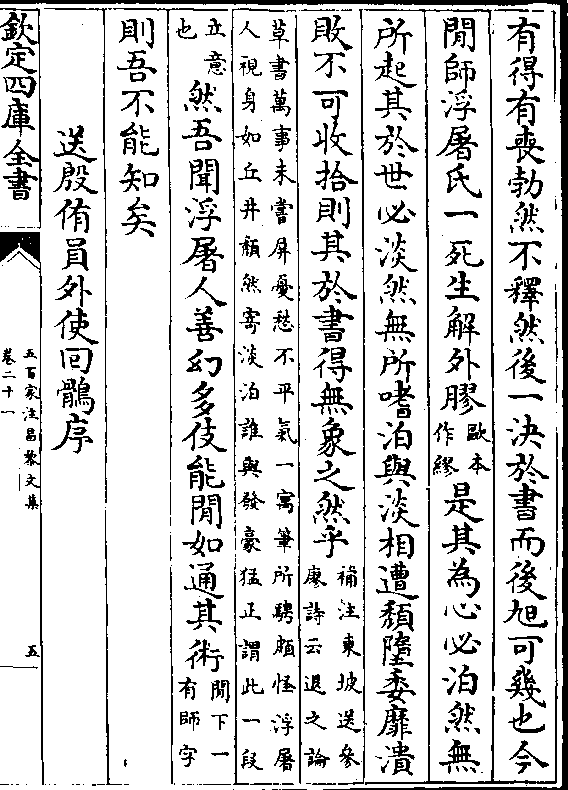 有得有喪勃然不釋然後一決於書而後旭可幾也今
閒師浮屠氏一死生解外膠歐本作繆是其為心必泊然無
所起其於世必淡然無所嗜泊與淡相遭頹墮委靡潰
敗不可收拾則其於書得無象之然乎補注東坡送參廖詩云退之論
草書萬事未嘗屏憂愁不平氣一寓筆所騁頗怪浮屠
人視身如丘井頹然寄淡泊誰與發豪猛正謂此一段
立意也然吾聞浮屠人善幻多伎能閒如通其術閒下一有師字
則吾不能知矣
送殷侑員外使回鶻序
欽定四庫全書
五百家注昌黎文集
卷二十一
五